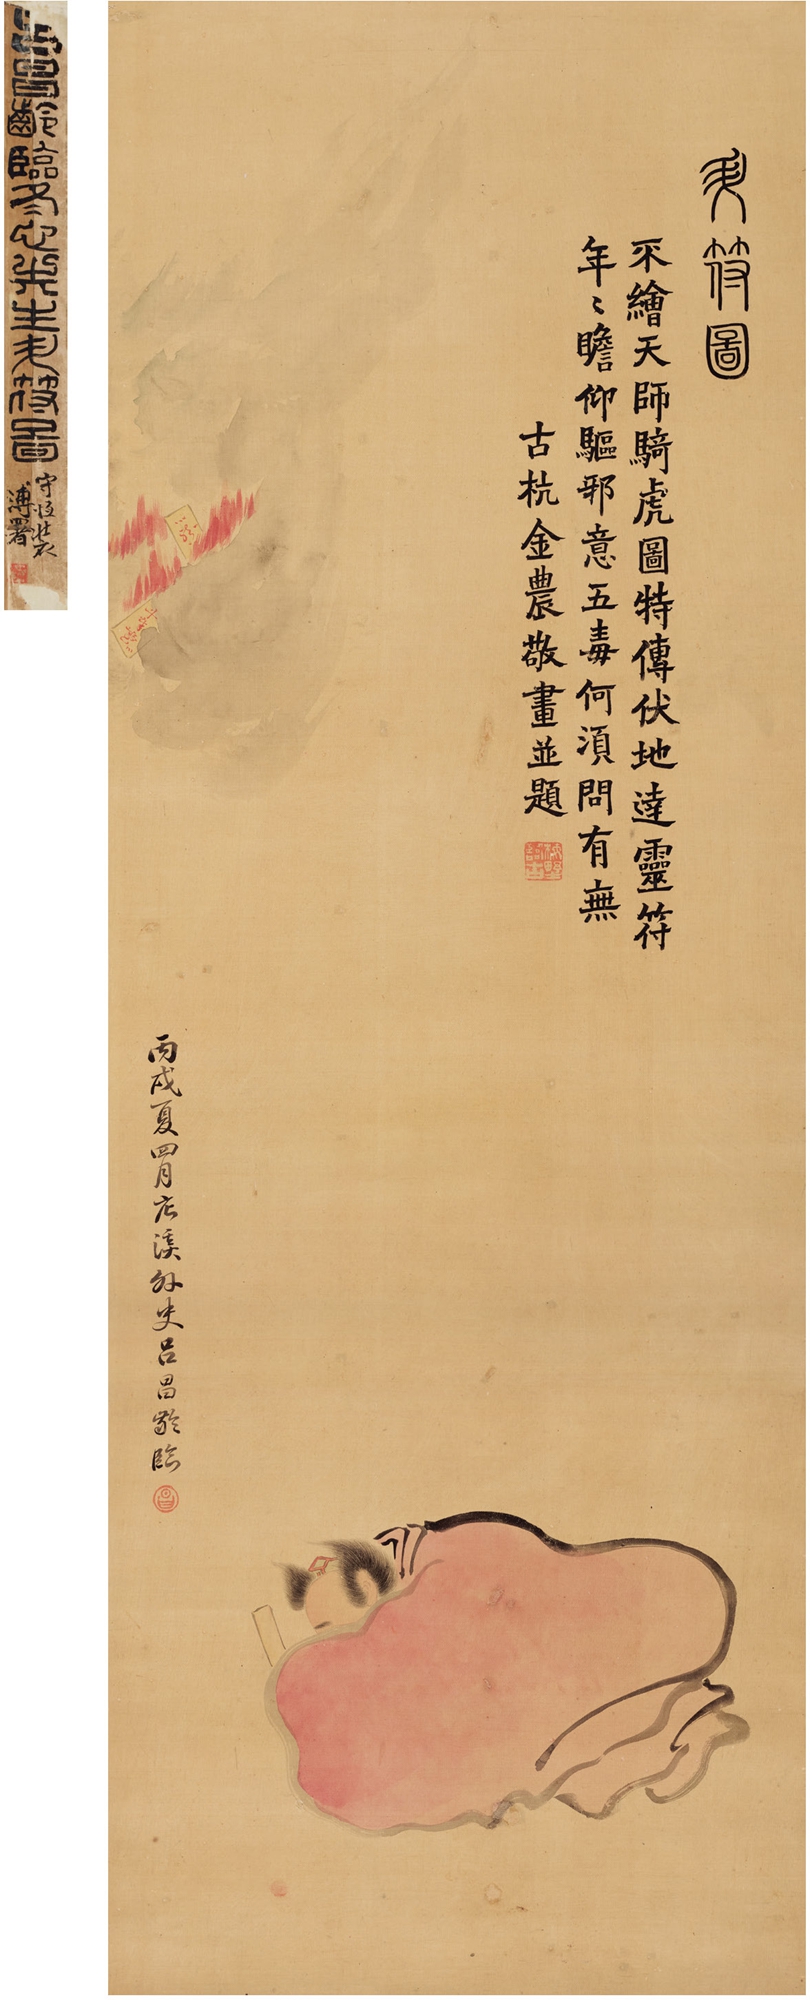 符圖
不繪天師騎虎圖特傳伏地達靈符
年〻瞻仰驅邪意五毒何須問有無
古杭金農敬畫並題
丙戌夏四月溪外史吕昌齡臨
昌齡臨冬心先生符圖
署